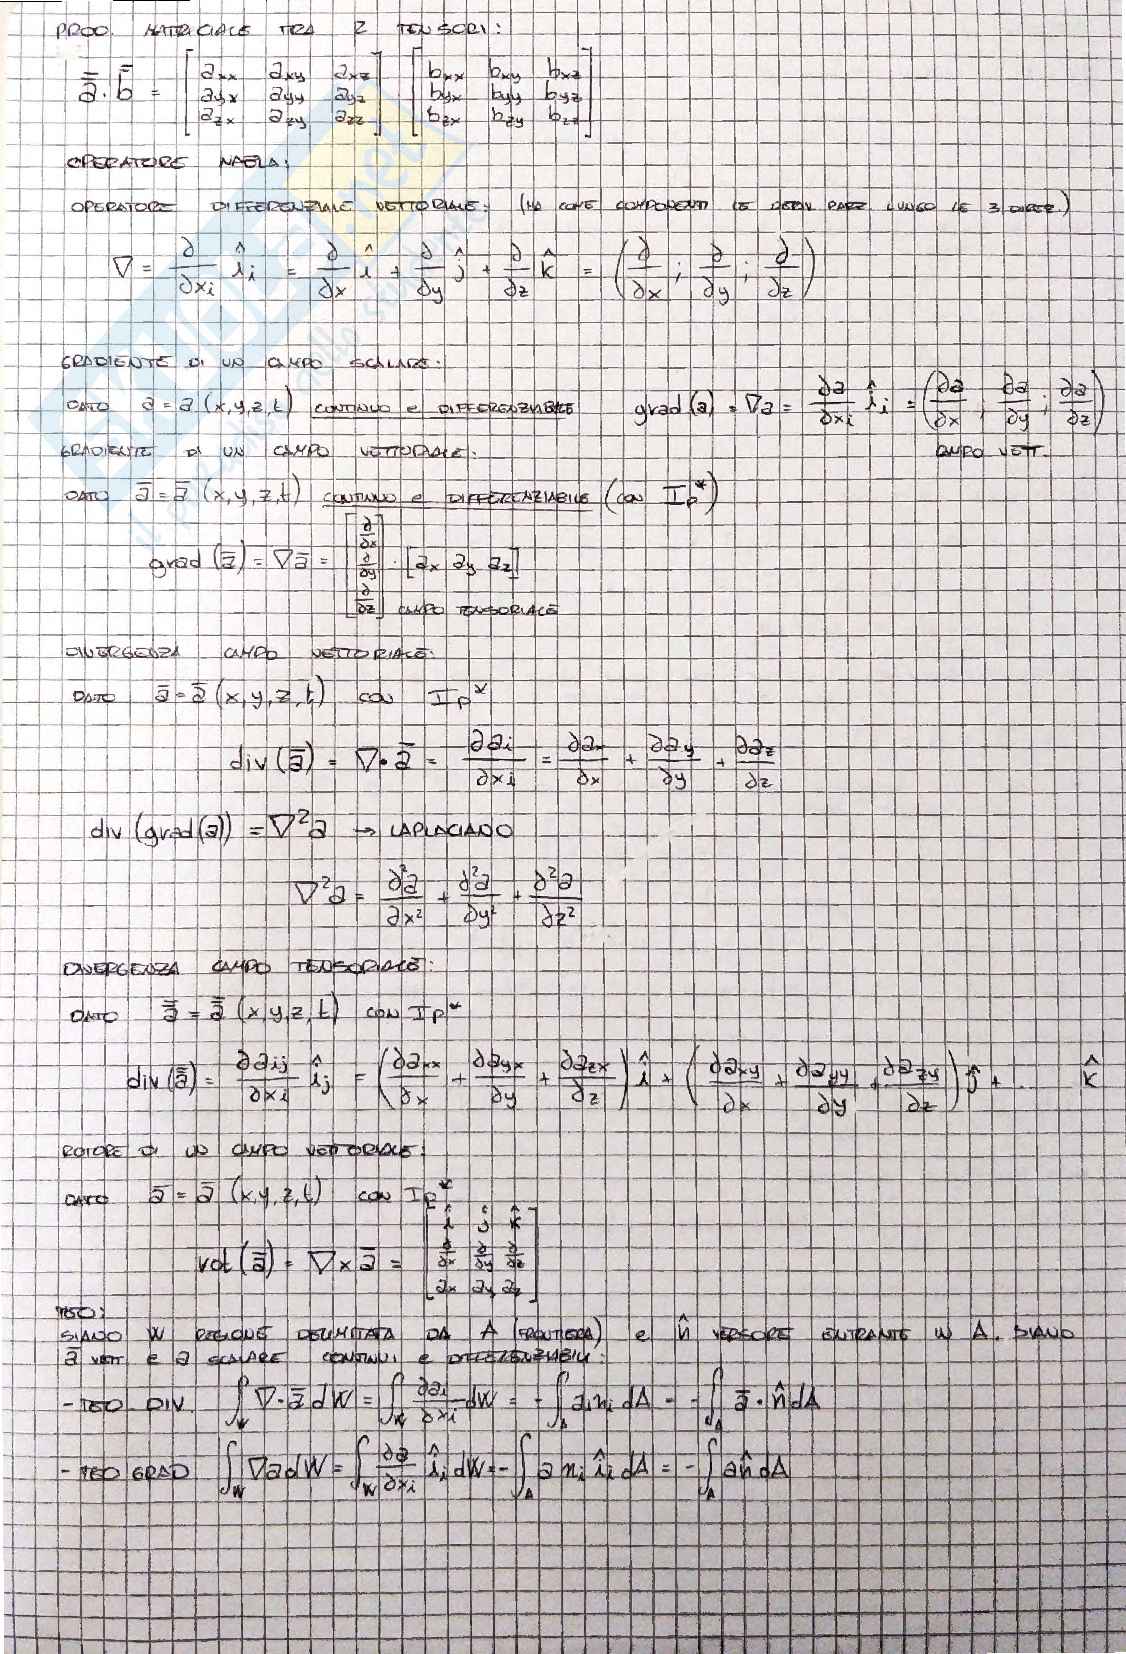 PROD. MATRICIALE TRA 2 TENSORI:
a̿ · b̿ = [axx axy axz; ayx ayy ayz; azx azy azz] · [bxx bxy bxz; byx byy byz; bzx bzy bzz]
OPERATORE NABLA:
OPERATORE DIFFERENZIALE VETTORIALE: (HA COME COMPONENTI LE DERIV PARZ. LUNGO LE 3 DIREZ.)
∇ = ∂/∂xi îi = ∂/∂x î + ∂/∂y ĵ + ∂/∂z k̂ = (∂/∂x ; ∂/∂y ; ∂/∂z)
GRADIENTE DI UN CAMPO SCALARE:
DATO a = a (x,y,z,t) CONTINUO E DIFFERENZIABILE grad(a) = ∇a = ∂a/∂xi îi = (∂a/∂x ; ∂a/∂y ; ∂a/∂z)
CAMPO VETT.
GRADIENTE DI UN CAMPO VETTORIALE:
DATO a̅ = a̅ (x,y,z,t) CONTINUO E DIFFERENZIABILE (CON Ip*)
grad (a̅) = ∇a̅ = [∂/∂x; ∂/∂y; ∂/∂z] · [ax ay az]
CAMPO TENSORIALE
DIVERGENZA CAMPO VETTORIALE:
DATO a̅ = a̅ (x,y,z,t) CON Ip*
div (a̅) = ∇·a̅ = ∂ai/∂xi = ∂ax/∂x + ∂ay/∂y + ∂az/∂z
div (grad(a)) = ∇²a → LAPLACIANO
∇²a = ∂²a/∂x² + ∂²a/∂y² + ∂²a/∂z²
DIVERGENZA CAMPO TENSORIALE:
DATO a̿ = a̿ (x,y,z,t) CON Ip*
div (a̿) = ∂aij/∂xi îj = (∂axx/∂x + ∂ayx/∂y + ∂azx/∂z) î + (∂axy/∂x + ∂ayy/∂y + ∂azy/∂z) ĵ + ... k̂
ROTORE DI UN CAMPO VETTORIALE:
DATO a̅ = a̅ (x,y,z,t) CON Ip*
rot (a̅) = ∇ x a̅ = [î ĵ k̂; ∂/∂x ∂/∂y ∂/∂z; ax ay az]
TEO:
SIANO W REGIONE DELIMITATA DA A (FRONTIERA) E n̂ VERSORE ENTRANTE IN A. SIANO
a̅ VETT. E a SCALARE CONTINUI E DIFFERENZIABILI:
- TEO DIV. ∫W ∇·a̅ dW = ∫W ∂ai/∂xi dW = -∫A ai ni dA = -∫A a̅ · n̂ dA
- TEO GRAD ∫W ∇a dW = ∫W ∂a/∂xi îi dW = -∫A a ni îi dA = -∫A a n̂ dA